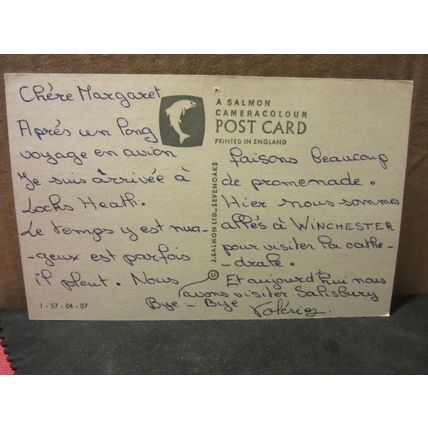 Chère Margaret
Après un long
voyage en avion
Je suis arrivée à
Locks Heath.
Le temps y est nua-
-geux est parfois
il pleut. Nous
A SALMON
CAMERACOLOUR
POST CARD
PRINTED IN ENGLAND
J. SALMON LTD., SEVENOAKS
faisons beaucoup
de promenade.
Hier nous sommes
allés à WINCHESTER
pour visiter la cathe-
-drale.
Et aujourd'hui nous
avons visiter Salisbury
Bye-Bye
Valérie
1-57-04-07